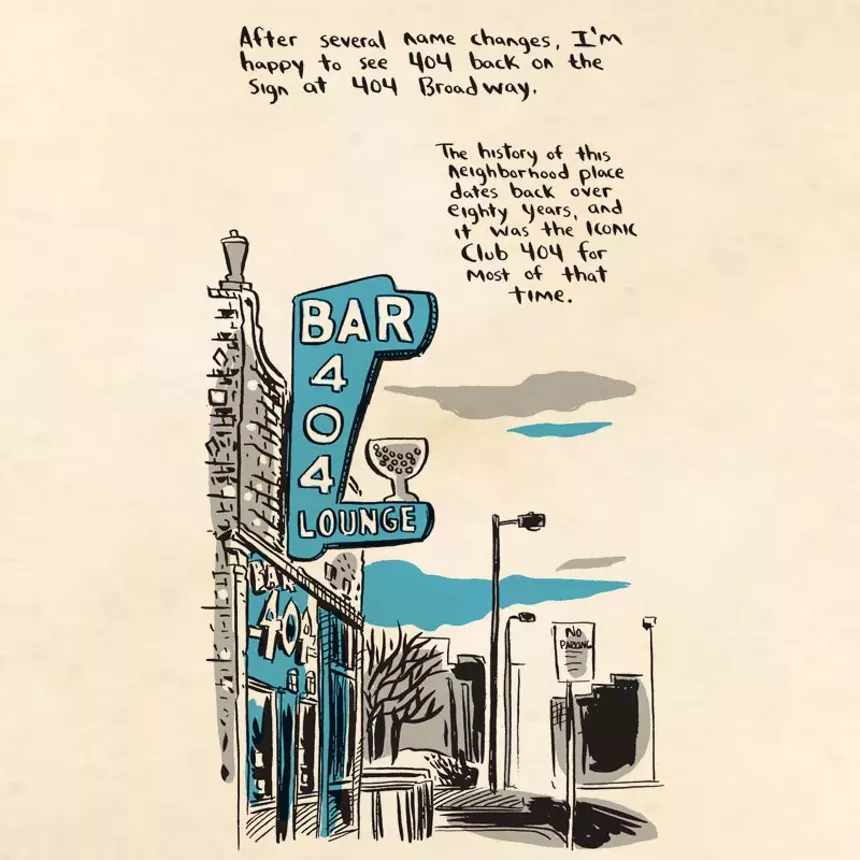 After several name changes, I'm
happy to see 404 back on the
sign at 404 Broadway.
The history of this
neighborhood place
dates back over
eighty years, and
it was the iconic
Club 404 for
most of that
time.
BAR
404
LOUNGE
BAR
404
NO
PARKING